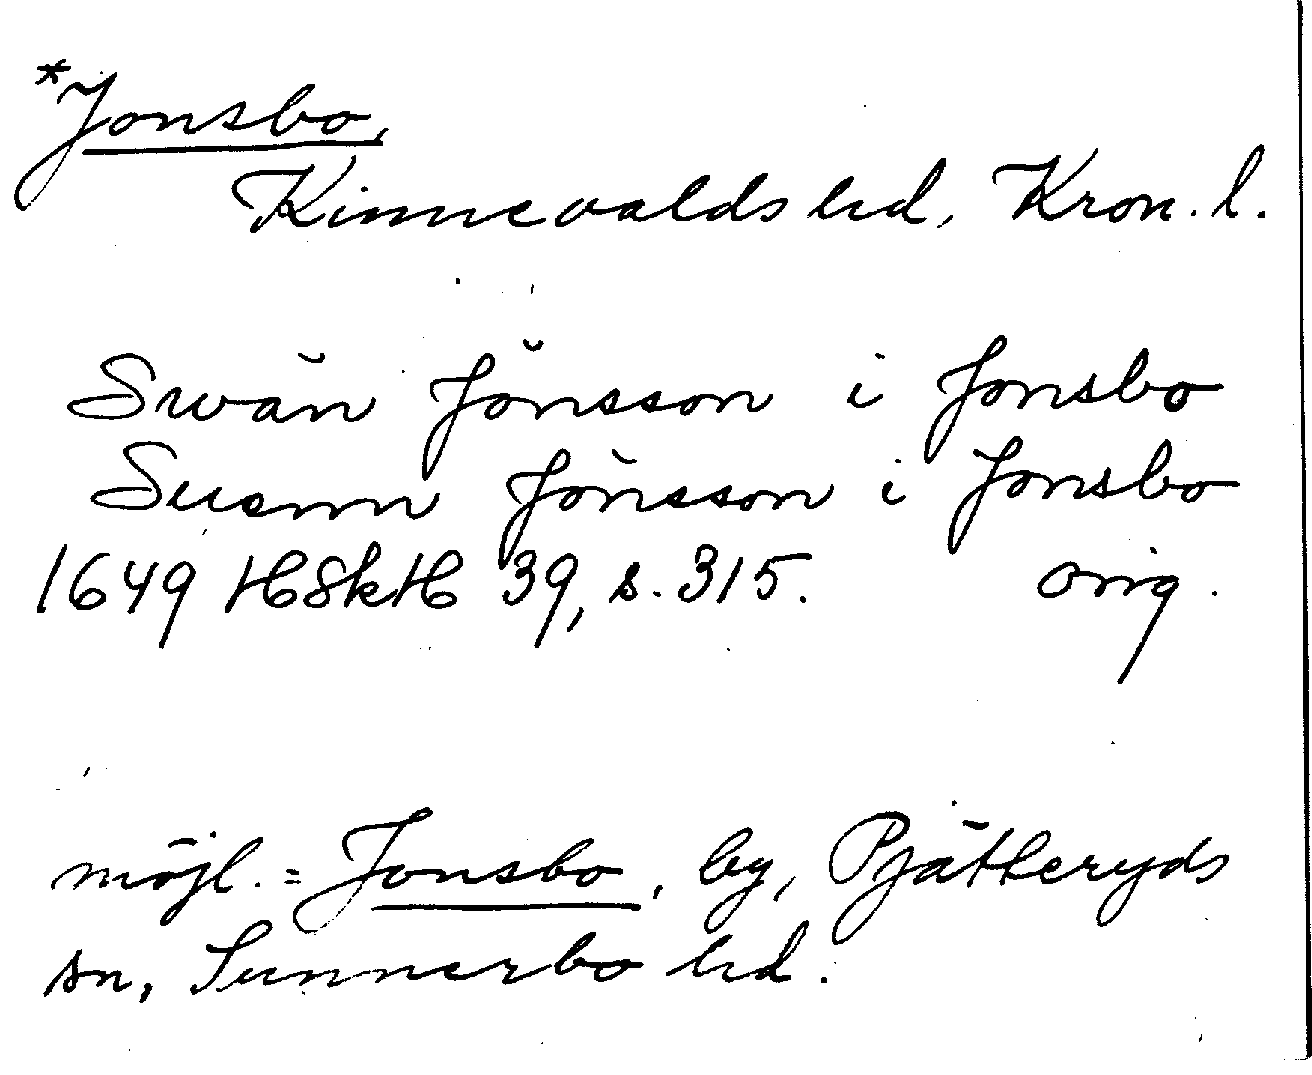 *Jonsbo,
Kinnevalds hd, Kron. l.
Swän Jönsson i Jonsbo
Suenn Jönsson i Jonsbo
1649 HSkH 39, s. 315. orig.
möjl. = Jonsbo, by, Pjätteryds
sn, Sunnerbo hd.